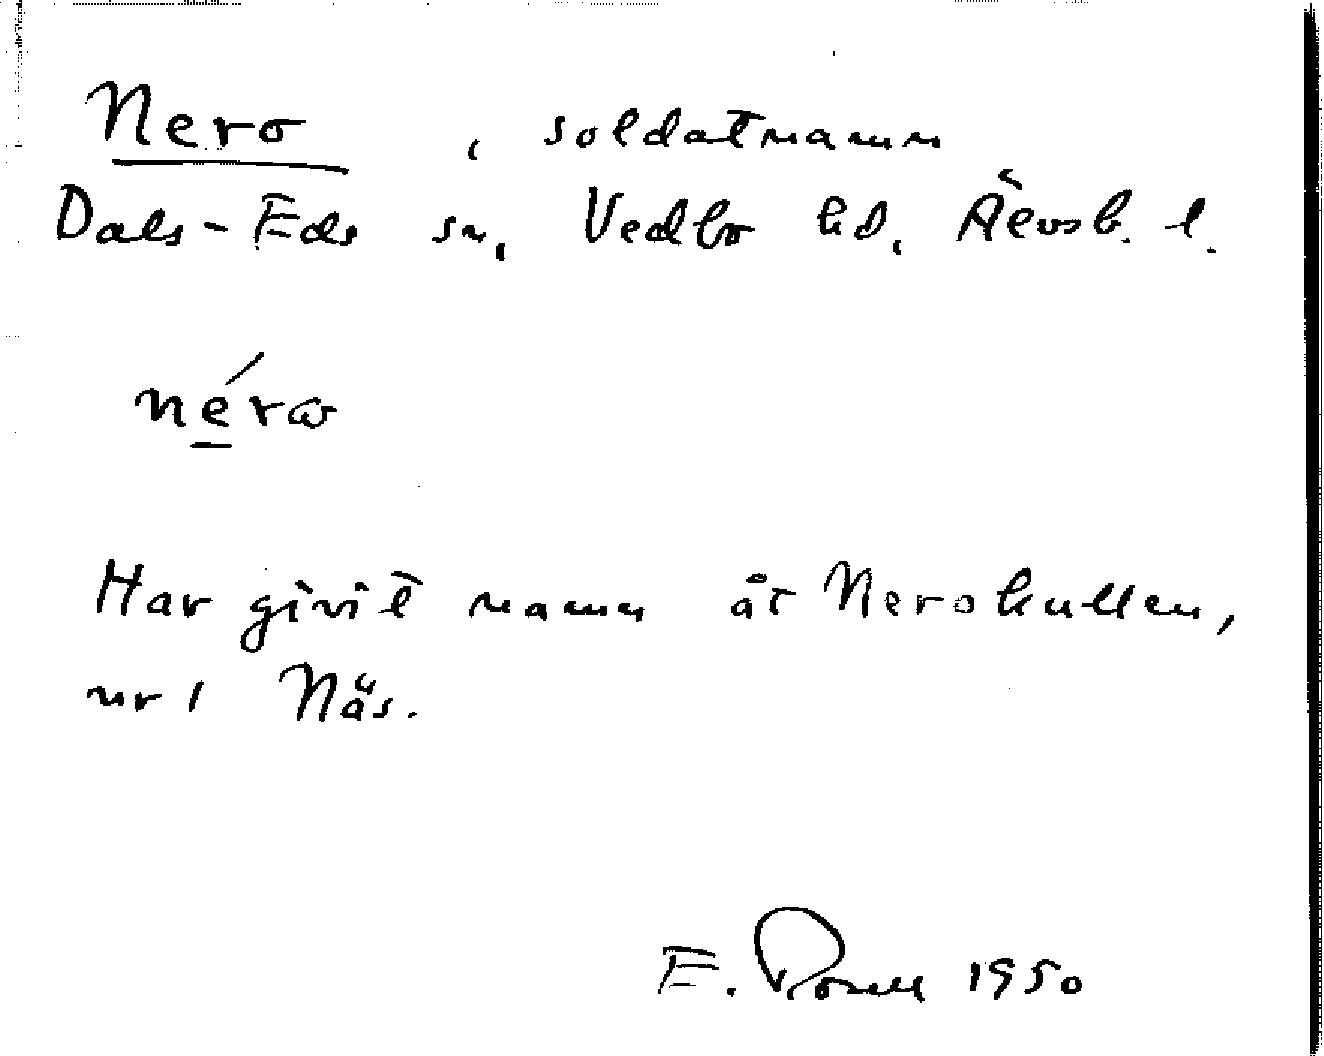 Nero , soldatnamn
Dals-Eds sn, Vedbo hd, Älvsb. l.
néra
Har givit namn åt Nerokullen,
nr 1 Näs.
E. Rosell 1950